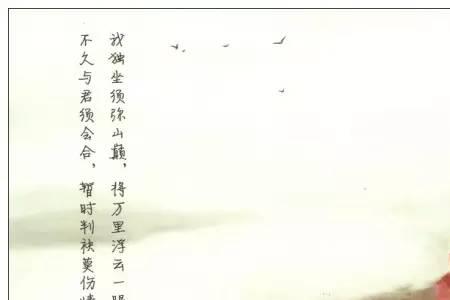 我独坐须弥山巅，将万里浮云一眼
不久与君须会合，暂时判袂莫伤情